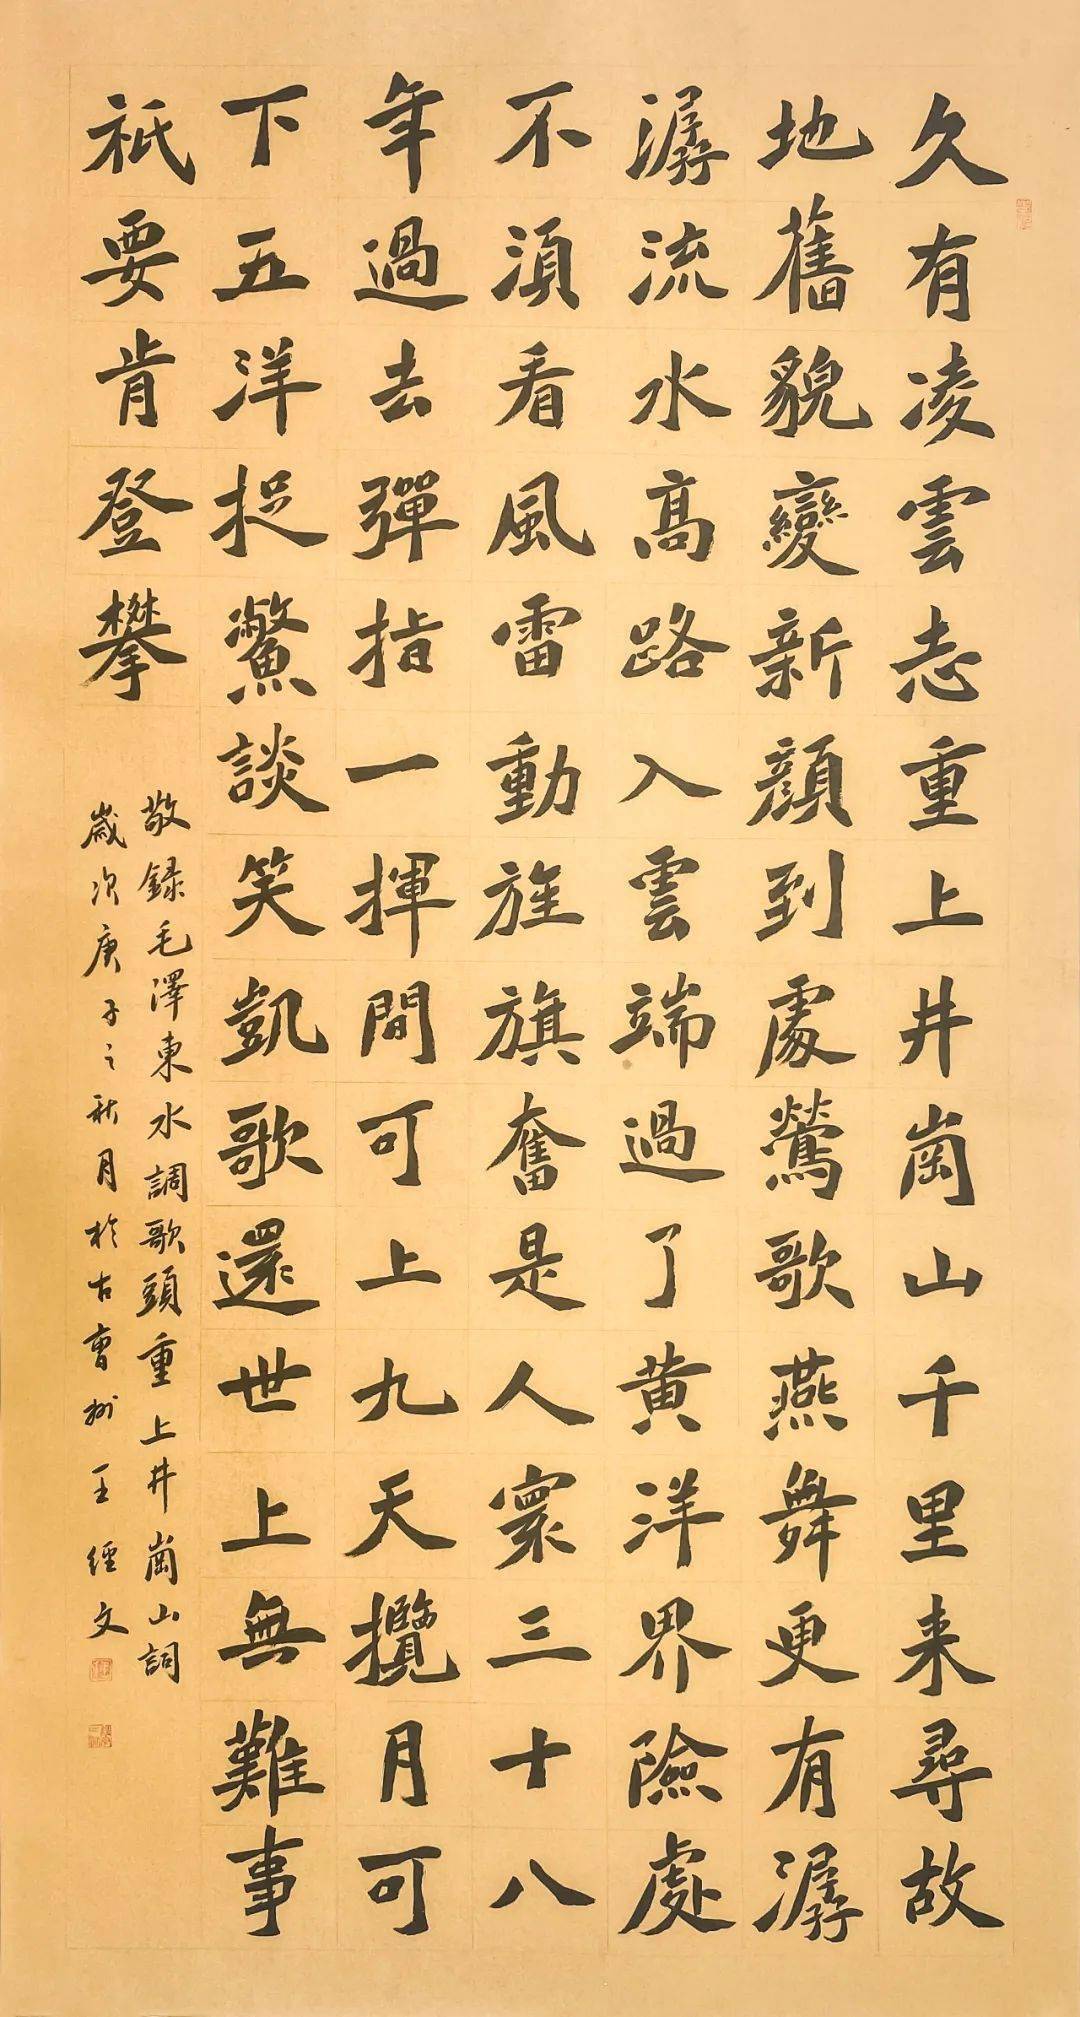 久有凌雲志重上井崗山千里来尋故
地舊貌變新顏到處鶯歌燕舞更有潺
潺流水高路入雲端過了黄洋界險處
不須看風雷動旌旗奮是人寰三十八
年過去彈指一揮間可上九天攬月可
下五洋捉鱉談笑凱歌還世上無難事
祇要肯登攀
敬録毛澤東水調歌頭重上井崗山詞
歲次庚子之秋月於古曹州王經文